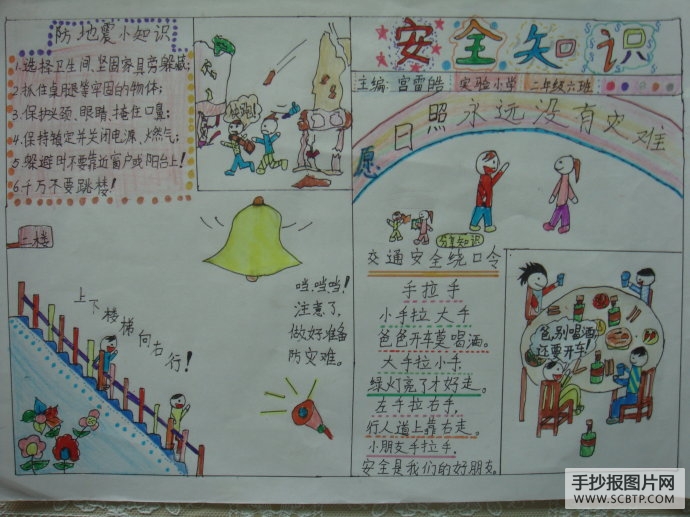 防地震小知识
1.选择卫生间、坚固家具旁躲藏;
2.抓住桌腿等牢固的物体;
3.保护头颈、眼睛、掩住口鼻;
4.保持镇定并关闭电源、燃气;
5.躲避时不要靠近窗户或阳台上!
6.千万不要跳楼!
快跑!
二楼
上下楼梯向右行!
当,当,当!
注意了,
做好准备
防灾难。
安全知识
主编:宫雷皓 实验小学 二年级六班
愿日照永远没有灾难
分享知识
交通安全绕口令
手拉手
小手拉大手
爸爸开车莫喝酒。
大手拉小手,
绿灯亮了才好走。
左手拉右手,
行人道上靠右走。
小朋友手拉手,
安全是我们的好朋友。
爸,别喝酒,
还要开车!
手抄报图片网
WWW.SCBTP.COM